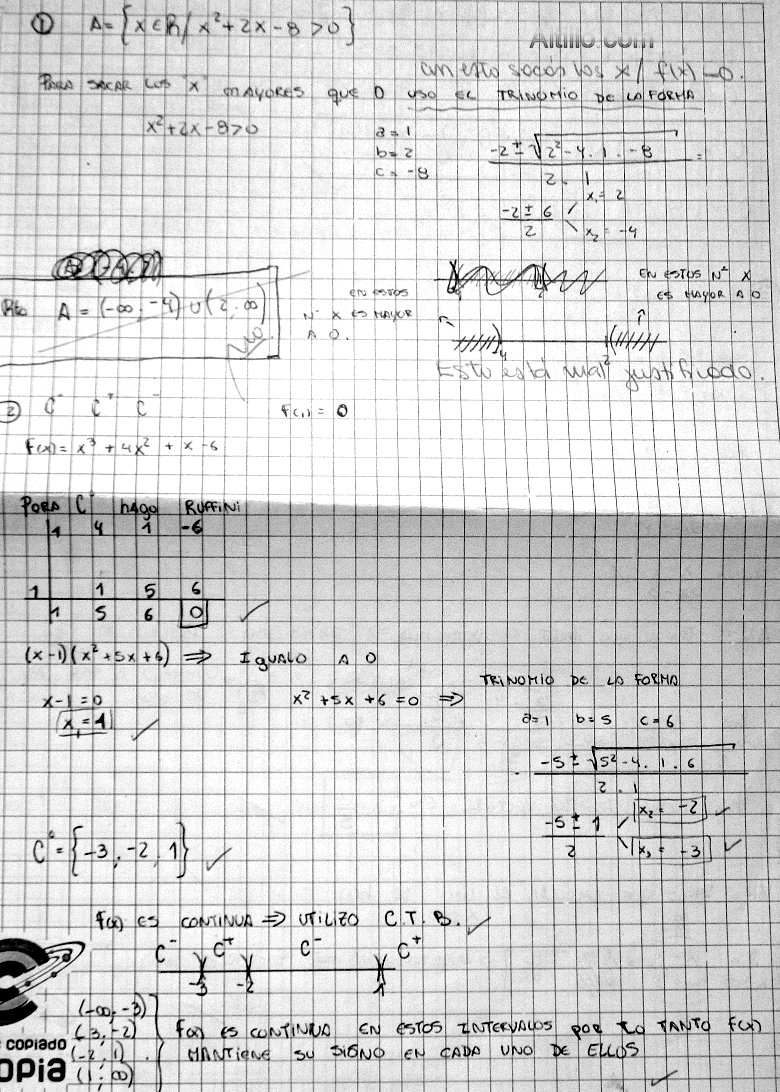 ① A = {x ∈ R / x² + 2x - 8 > 0}
Altillo.com
con esto sacás los x / f(x) = 0.
PARA SACAR LOS "X" MAYORES QUE 0 USO EL TRINOMIO DE LA FORMA
x² + 2x - 8 > 0
a = 1
b = 2
c = -8
-2 ± √2² - 4 . 1 . -8 =
2 . 1
-2 ± 6
2
x₁ = 2
x₂ = -4
EN ESTOS Nº X
ES MAYOR A 0
Rta A = (-∞; -4) ∪ (2; ∞)
EN ESTOS
Nº X ES MAYOR
A 0.
-4 2
Esto está mal justificado.
② C⁻ C⁺ C⁻
f(1) = 0
f(x) = x³ + 4x² + x - 6
PARA C⁰ hAgo RUFFINI
1 4 1 -6
1 1 5 6
1 5 6 0
(x-1)(x² + 5x + 6) ⇒ IGUALO A 0
TRINOMIO DE LA FORMA
x - 1 = 0
x² + 5x + 6 = 0 ⇒
x₁ = 1
a = 1 b = 5 c = 6
-5 ± √5² - 4 . 1 . 6
2 . 1
-5 ± 1
2
x₂ = -2
x₃ = -3
C⁰ = {-3; -2; 1}
f(x) ES CONTINUA ⇒ UTILIZO C.T.B.
C⁻ C⁺ C⁻ C⁺
-3 -2 1
(-∞; -3)
(-3; -2)
(-2; 1)
(1; ∞)
f(x) ES CONTINUA EN ESTOS INTERVALOS POR LO TANTO f(x)
MANTIENE SU SIGNO EN CADA UNO DE ELLOS
copiado
opia